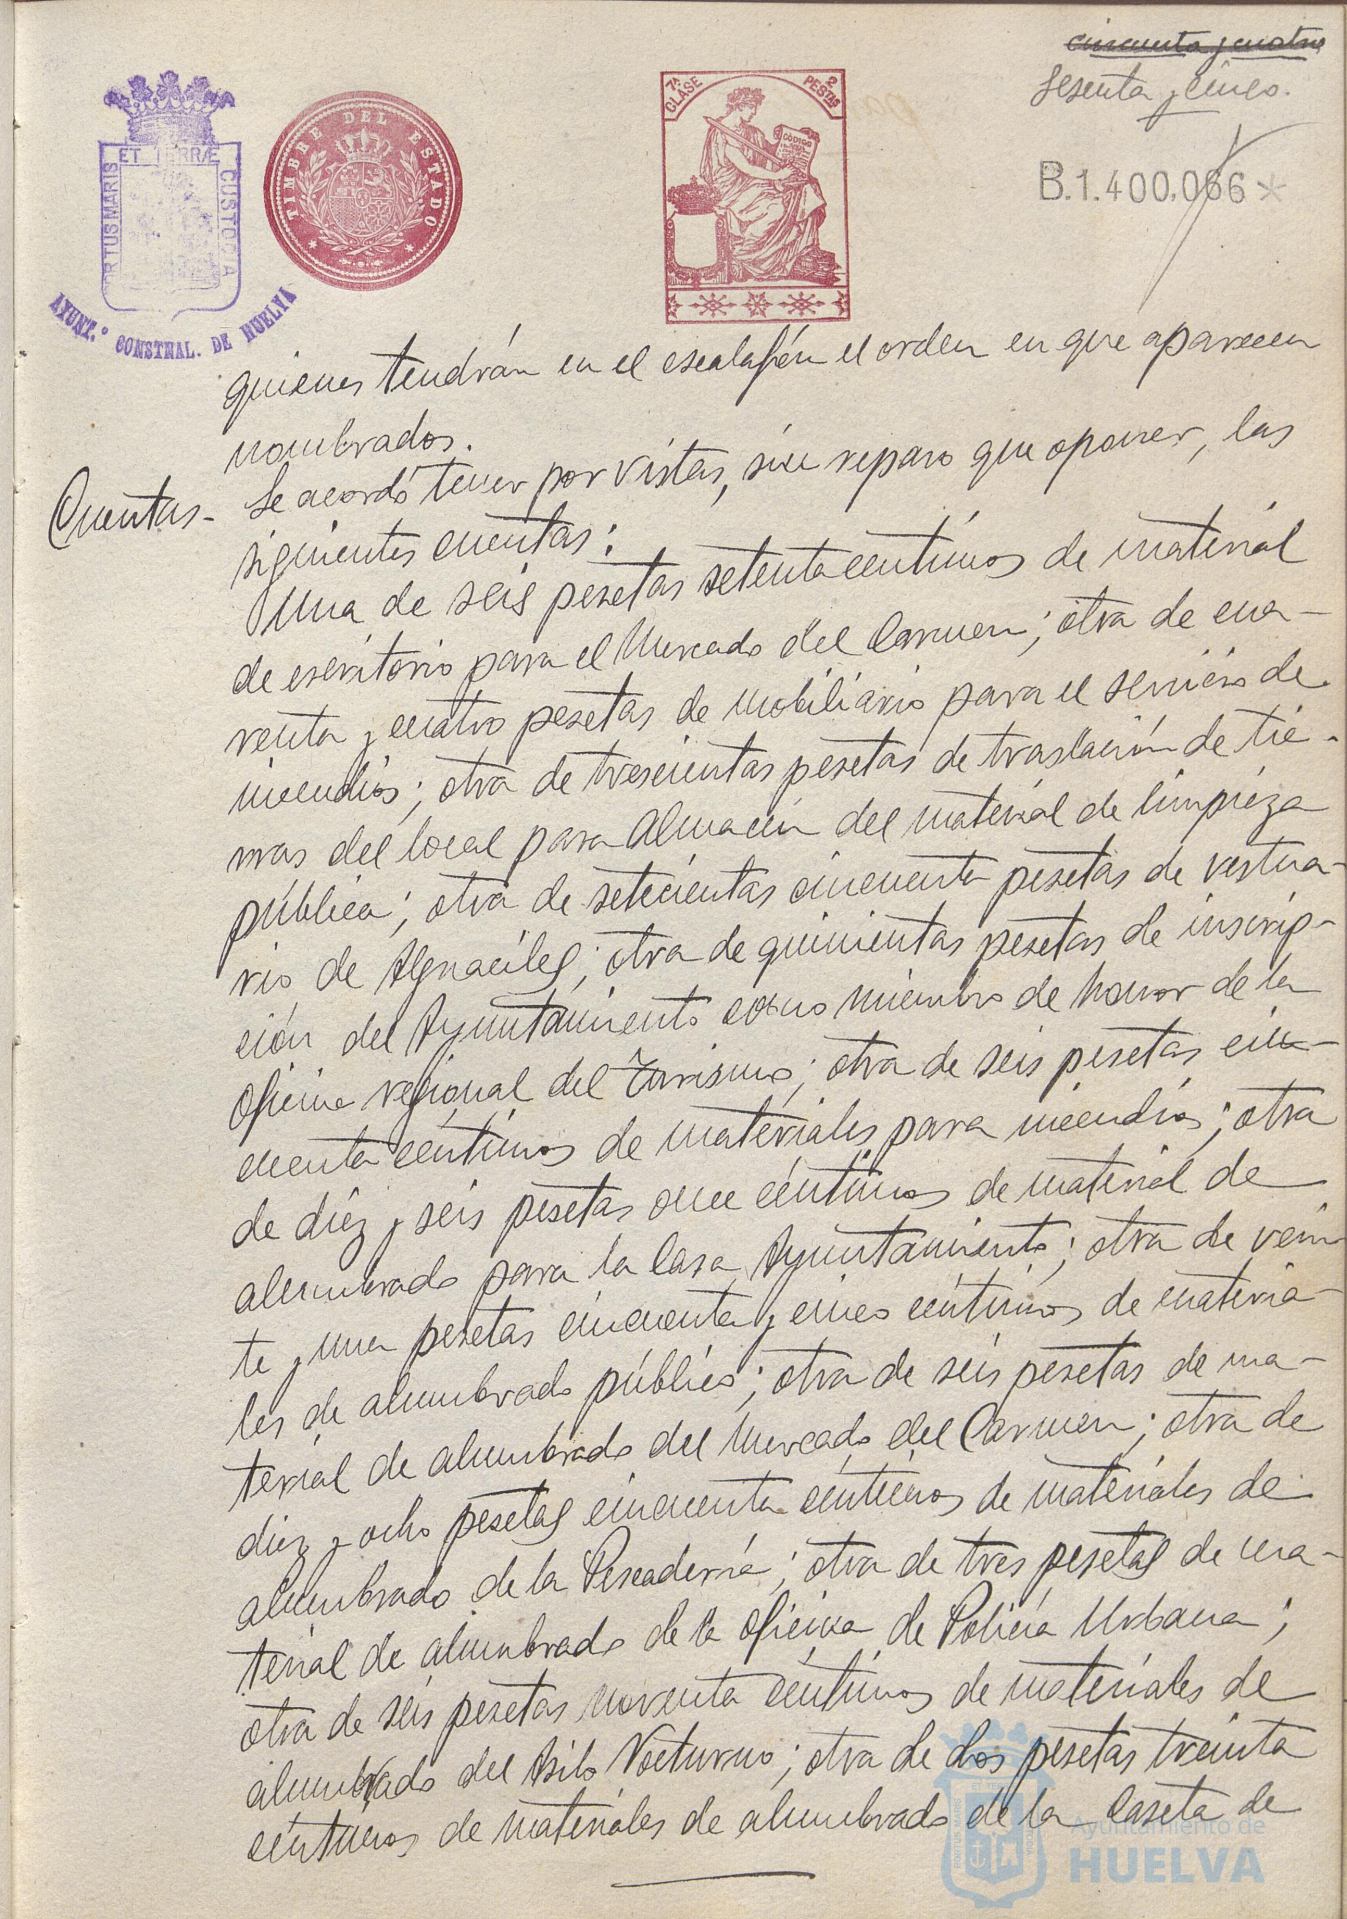 cincuenta y cuatro
Sesenta y cinco.
7ª CLASE
2 PESTAS
CODIGO
TIMBRE DEL ESTADO
PORTUS MARIS ET TERRÆ CUSTODIA
AYUNT.º CONSTNAL. DE HUELVA
B.1.400.066*
quienes tendrán en el escalafón el orden en que aparecen
nombrados.
Cuentas-
Se acordó tener por vistas, sin reparo que oponer, las
siguientes cuentas:
Una de seis pesetas setenta centimos de material
de escritorio para el Mercado del Carmen; otra de cua-
renta y cuatro pesetas de mobiliario para el servicio de
incendios; otra de trescientas pesetas de traslación de tie-
rras del local para Almacén del material de limpieza
pública; otra de setecientas cincuenta pesetas de vestua-
rio de Alguaciles; otra de quinientas pesetas de inscrip-
ción del Ayuntamiento como miembro de honor de la
oficina regional del Turismo; otra de seis pesetas cin-
cuenta céntimos de materiales para incendios; otra
de diez y seis pesetas once céntimos de material de
alumbrado para la Casa Ayuntamiento; otra de vein-
te y una pesetas cincuenta y cinco céntimos de materia-
les de alumbrado público; otra de seis pesetas de ma-
terial de alumbrado del Mercado del Carmen; otra de
diez y ocho pesetas cincuenta céntimos de materiales de
alumbrado de la Pescadería; otra de tres pesetas de ma-
terial de alumbrado de la oficina de Policía Urbana;
otra de seis pesetas noventa céntimos de materiales de
alumbrado del Asilo Nocturno; otra de dos pesetas treinta
céntimos de materiales de alumbrado de la Caseta de
Ayuntamiento de
HUELVA